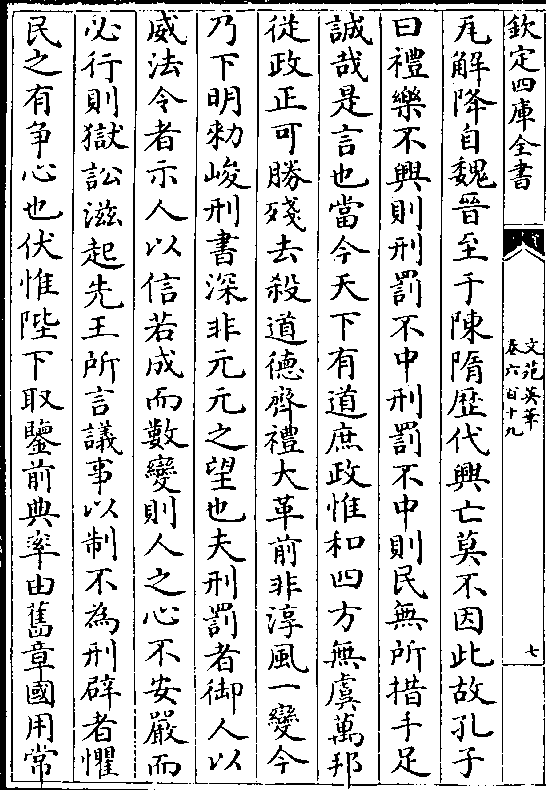 欽定四庫全書
文苑英華
卷六百十九
七
瓦解降自魏晉至于陳隋歴代興亡莫不因此故孔子
曰禮樂不興則刑罰不中刑罰不中則民無所措手足
誠哉是言也當今天下有道庶政惟和四方無虞萬邦
從政正可勝殘去殺道德齊禮大革前非淳風一變今
乃下明勑峻刑書深非元元之望也夫刑罰者御人以
威法令者示人以信若成而數變則人之心不安嚴而
必行則獄訟滋起先王所言議事以制不為刑辟者懼
民之有争心也伏惟陛下取鑒前典率由舊章國用常